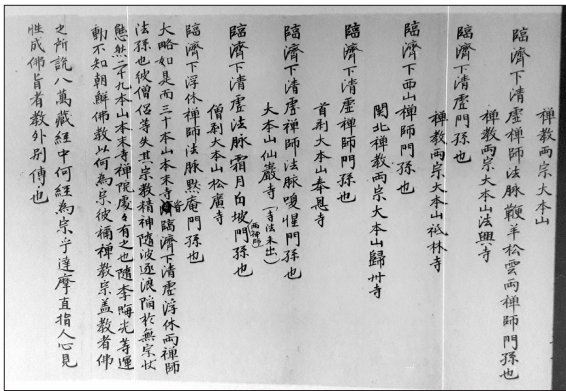 禪教兩宗大本山
臨濟下清虛禪師法脈鞭羊松雲兩禪師門孫也
禪教兩宗大本山法興寺
臨濟下清虛門孫也
禪教兩宗大本山祇林寺
臨濟下西山禪師門孫也
関北禪教兩宗大本山歸州寺
臨濟下清虛禪師門孫也
首刹大本山奉恩寺
臨濟下清虛禪師法脈喚惺門孫也
大本山仙巖寺(寺法未出)
臨濟下清虛法脈霜月白坡(兩禪師)門孫也
僧刹大本山松廣寺
臨濟下浮休禪師法脈默庵門孫也
大略如是而三十本山本末寺皆臨濟下清虛浮休兩禪師
法孫也彼僧侶等失其宗教精神隨波逐浪陷於無宗狀
態然二千九本山本末寺禪院處々有之也隨李晦光等運
動不知朝鮮佛教以何為宗彼稱禪教宗盖教者佛
之所説八萬藏經中何經為宗乎達摩直指人心見
性成佛旨者教外別傳也